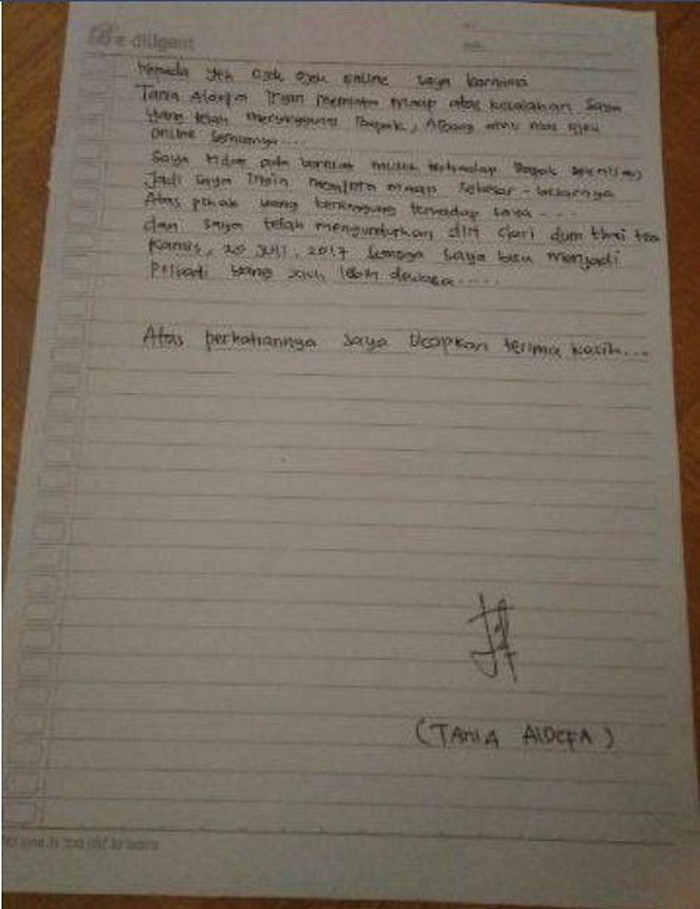 Be diligent
Kepada yth Ojek ojek online saya bernama
Tania Aldefa Ingin meminta maap atas kesalahan saya
yang telah menyinggung Bapak, Abang atau mas ojek
online semuanya...
Saya tidak ada berniat terhadap Bapak
Jadi saya Ingin meminta maap sebesar-besarnya
Atas pihak yang tersinggung terhadap saya...
dan saya telah mengundurkan diri dari dum thai tea
Kamis, 20 Juli, 2017 Semoga saya bisa menjadi
Pribadi yang jauh lebih dewasa.....
Atas perhatiannya saya Ucapkan terima kasih...
(TANIA AlDEFA)